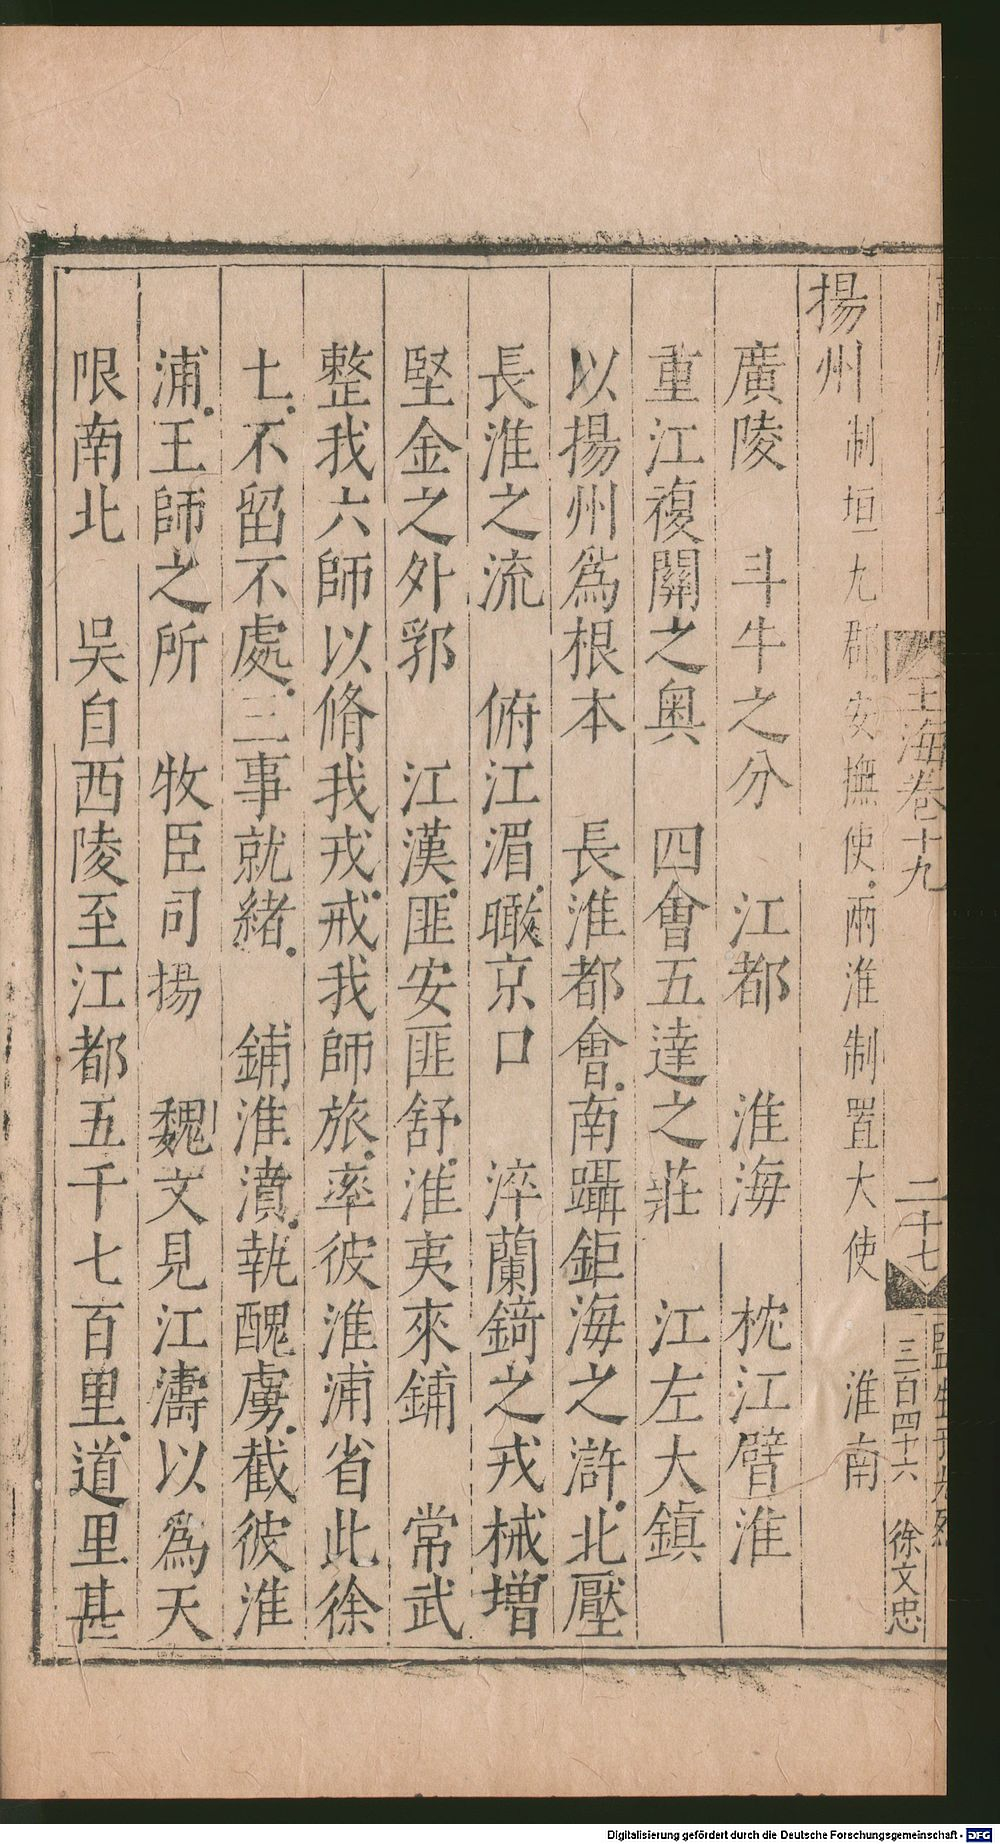 玉海卷十九
二十七
三百四十六　徐文忠
揚州制垣九郡安撫使。兩淮制置大使　淮南
廣陵　斗牛之分　江都　淮海　枕江臂淮
重江複關之奥　四會五達之莊　江左大鎮
以揚州為根本　長淮都會。南躡鉅海之滸。北壓
長淮之流　俯江湄。瞰京口　淬蘭錡之戎械。增
堅金之外郛　江漢。匪安匪舒。淮夷來鋪　常武
整我六師以脩我戎。戒我師旅。率彼淮浦省此徐
土。不留不處。三事就緒。　鋪淮濆。執醜虜。截彼淮
浦。王師之所　牧臣司揚　魏文見江濤以為天
限南北　吳自西陵至江都五千七百里。道里甚
Digitalisierung gefördert durch die Deutsche Forschungsgemeinschaft - DFG